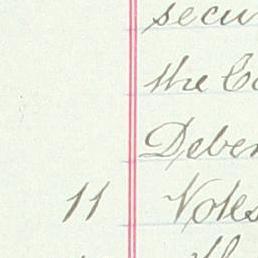 secu
the Co
Deben
11 Votes